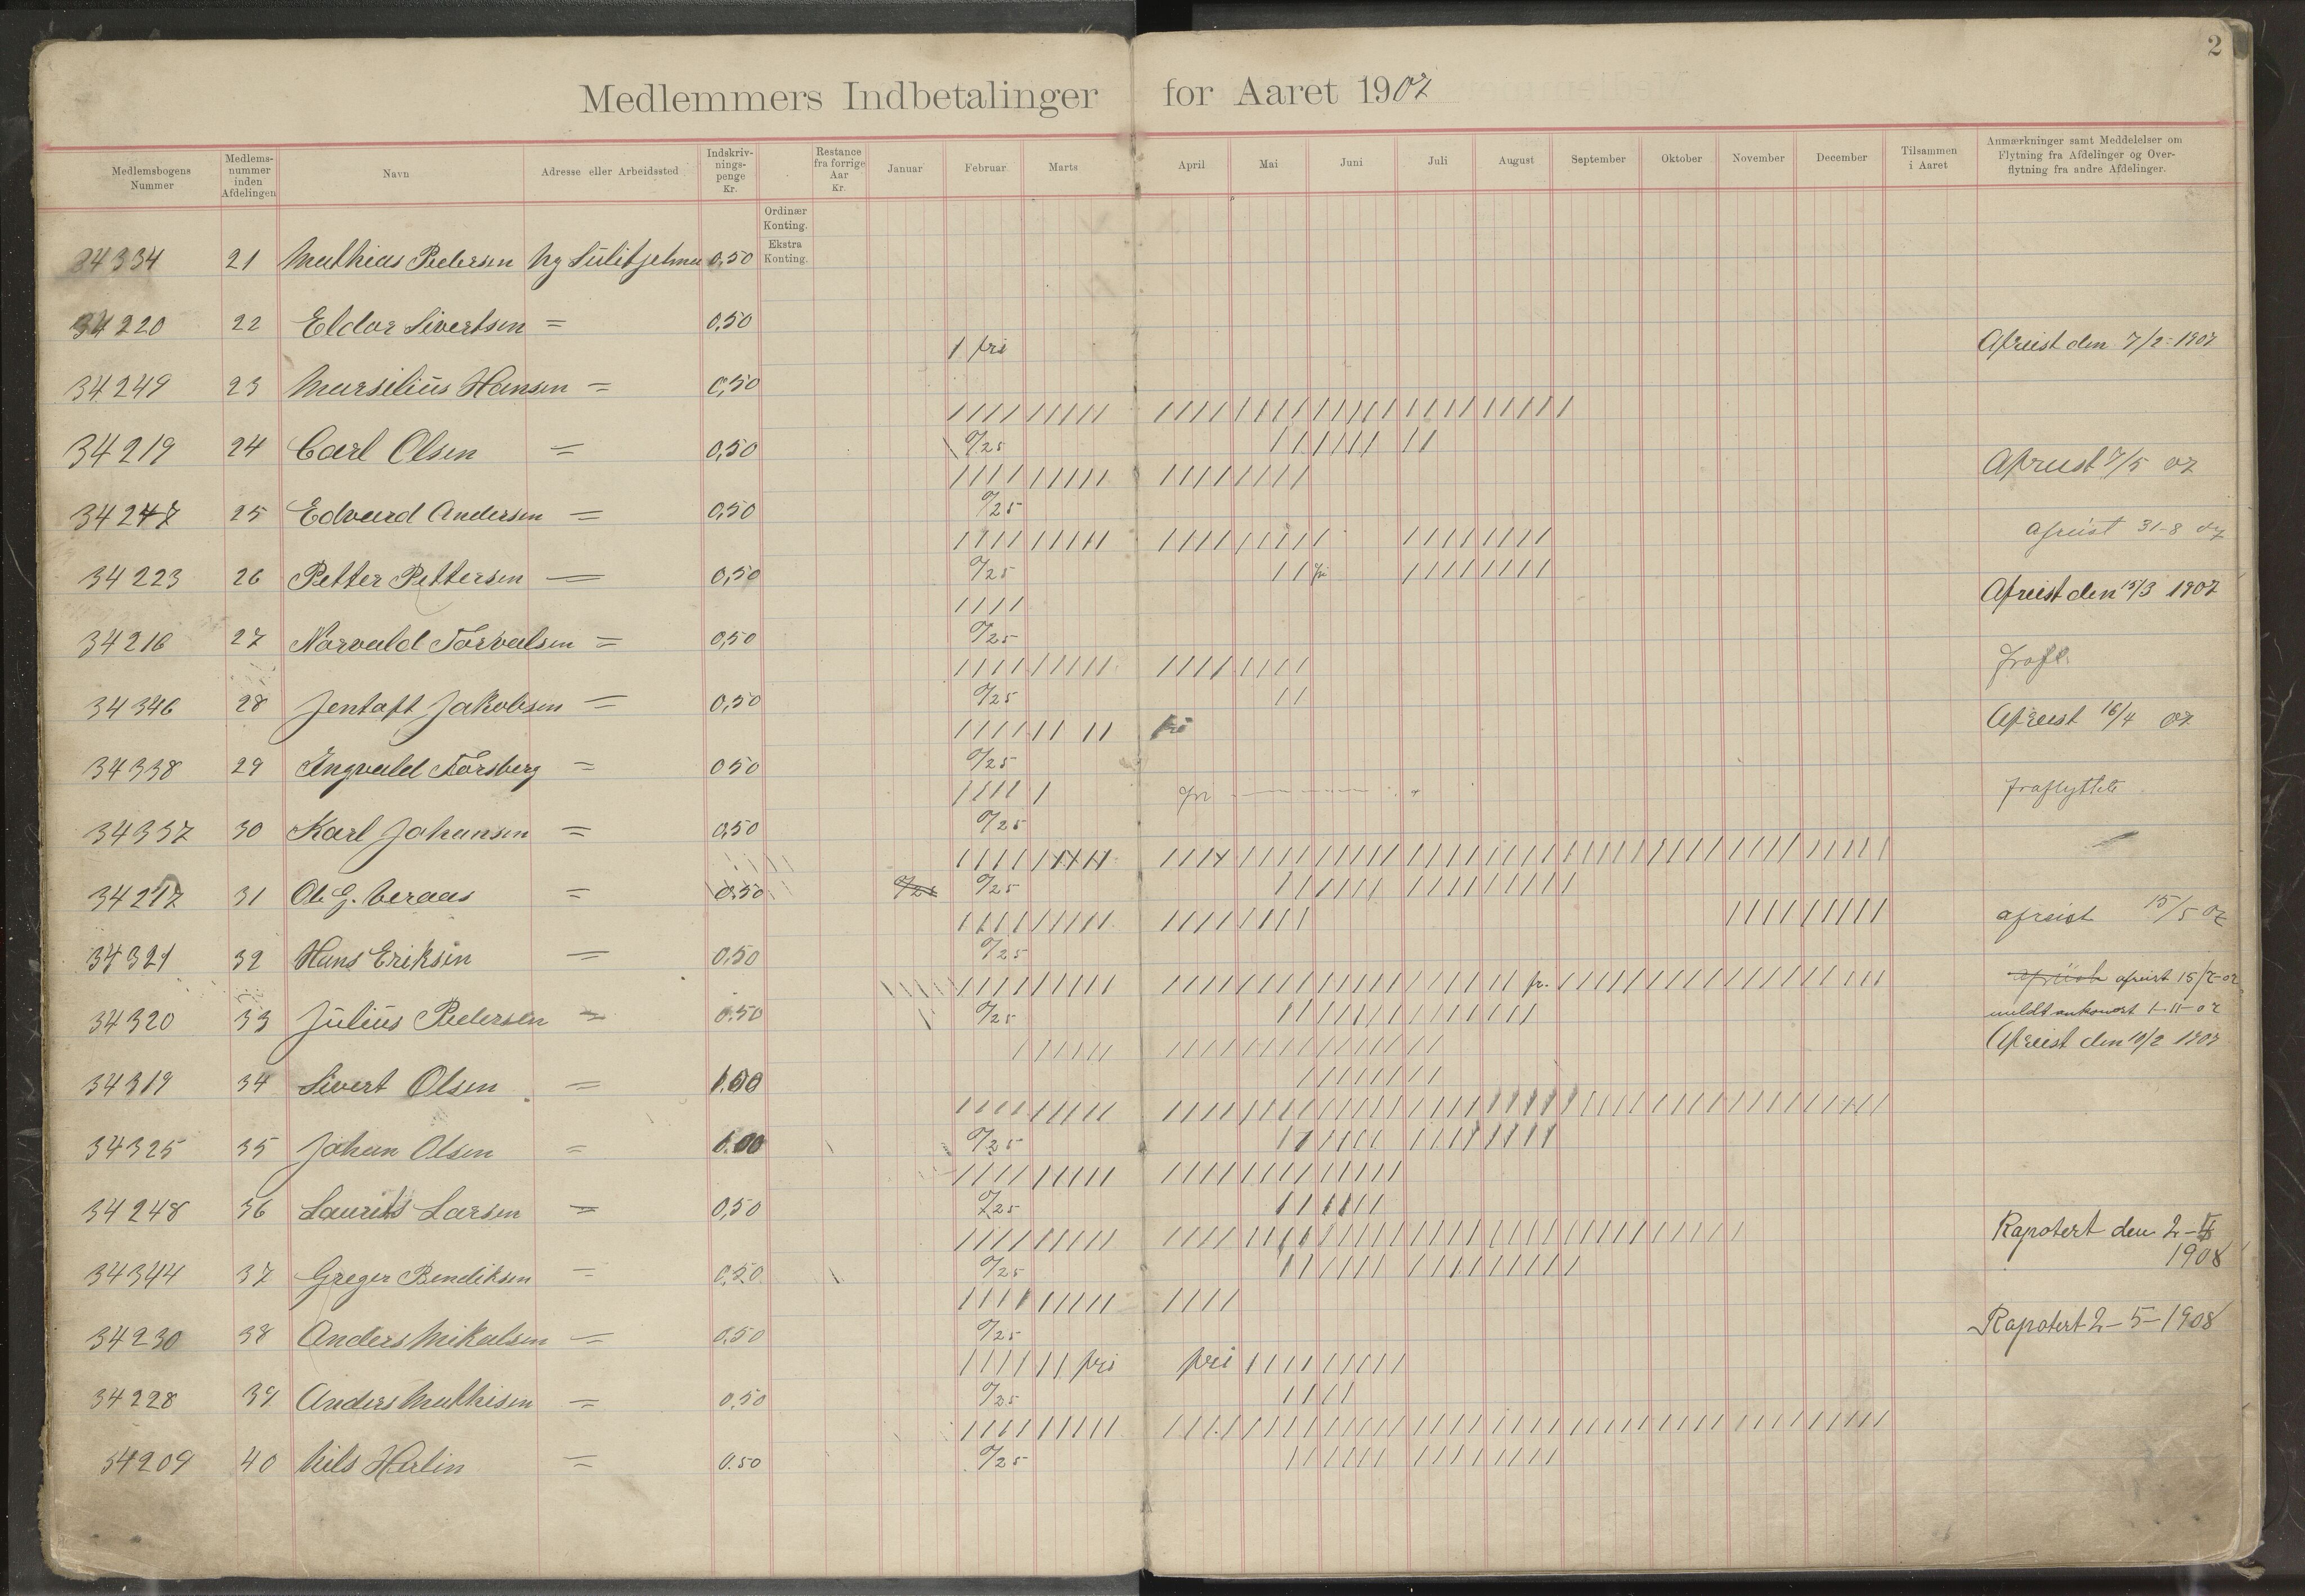 2
Medlemmers Indbetalinger for Aaret 1907
Medlemsbogens Nummer
Medlems-nummer inden Afdelingen
Navn
Adresse eller Arbeidssted
Indskriv-nings-penge Kr.
Restance fra forrige Aar Kr.
Januar Februar Marts April Mai Juni Juli August September Oktober November December
Tilsammen i Aaret
Anmærkninger samt Meddelelser om Flytning fra Afdelinger og Over-flytning fra andre Afdelinger.
Ordinær Konting.
Ekstra Konting.
34334 21 Mathias Pedersen Ny Sulitjelma 0,50
34220 22 Eldor Sivertsen = 0,50
1 fri Afreist den 7/2 - 1907
34249 23 Marsilius Hansen = 0,50
34219 24 Carl Olsen = 0,50 0/25
Afreist 7/5 07
34247 25 Edvard Andersen = 0,50 0/25
afreist 31-8 07
34223 26 Petter Pettersen = 0,50 0/25 fri
Afreist den 15/3 1907
34216 27 Norvald Torvalsen = 0,50 0/25
frafl.
34346 28 Jentoft Jakobsen = 0,50 0/25
fri Afreist 16/4 07
34338 29 Ingvald Forsberg = 0 50 0/25
fraflyttet
34337 30 Karl Johansen = 0,50 0/25
34217 31 Ole G. = 0.50 0/25 0/25
afreist 15/5 07
34321 32 Hans Eriksen = 0,50 0/25
fr. afreist afreist 15/7-07
34320 33 Julius Pedersen = 0.50 0/25
meldt ankomst 1-11-07
Afreist den 10/2 1907
34319 34 Sivert Olsen = 1.00
34325 35 Johan Olsen = 1.00 0/25
34248 36 Laurits Larsen = 0,50 0/25
Rapotert den 2-
1908
34344 37 Greger Bendiksen = 0,50 0/25
34230 38 Anders Mikalsen = 0.50 0/25
Rapotert 2-5-1908
fri fri
34228 39 Anders Mathisen = 0,50 0/25
34209 40 Nils Herlin = 0.50 0/25